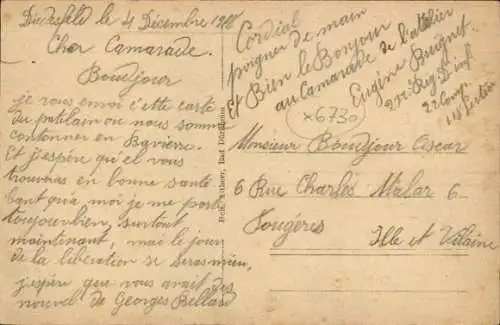 le 4 Décembre 19
Cher Camarade.
Boudjour
je vous envoi c'ette carte
du patelain ou nous somme
cantonner en Bavière.
Et j'espère qu'el vous
trouveras en bonne santé
quà moi je me porte
toujour bien, surtout
maintenant, mai le jour
de la libération se seras mieu,
j'espère que vous avait des
nouvel de Georges Bellard
Cordial
poigner de main
Et Bien le Bonjour
au Camarade de l'atelier
Eugène Buignet
Reg D inf
22 Comp
Section
x6730
Monsieur Boudjour Oscar
6 Rue Charles Malar 6
Fougères
Ille et Vilaine